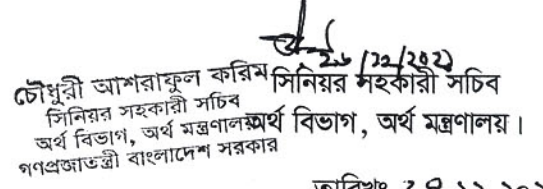 চৌধুরী আশরাফুল করিম
সিনিয়র সহকারী সচিব
অর্থ বিভাগ, অর্থ মন্ত্রণালয়
গণপ্রজাতন্ত্রী বাংলাদেশ সরকার
সিনিয়র সহকারী সচিব
অর্থ বিভাগ, অর্থ মন্ত্রণালয়।
তারিখঃ